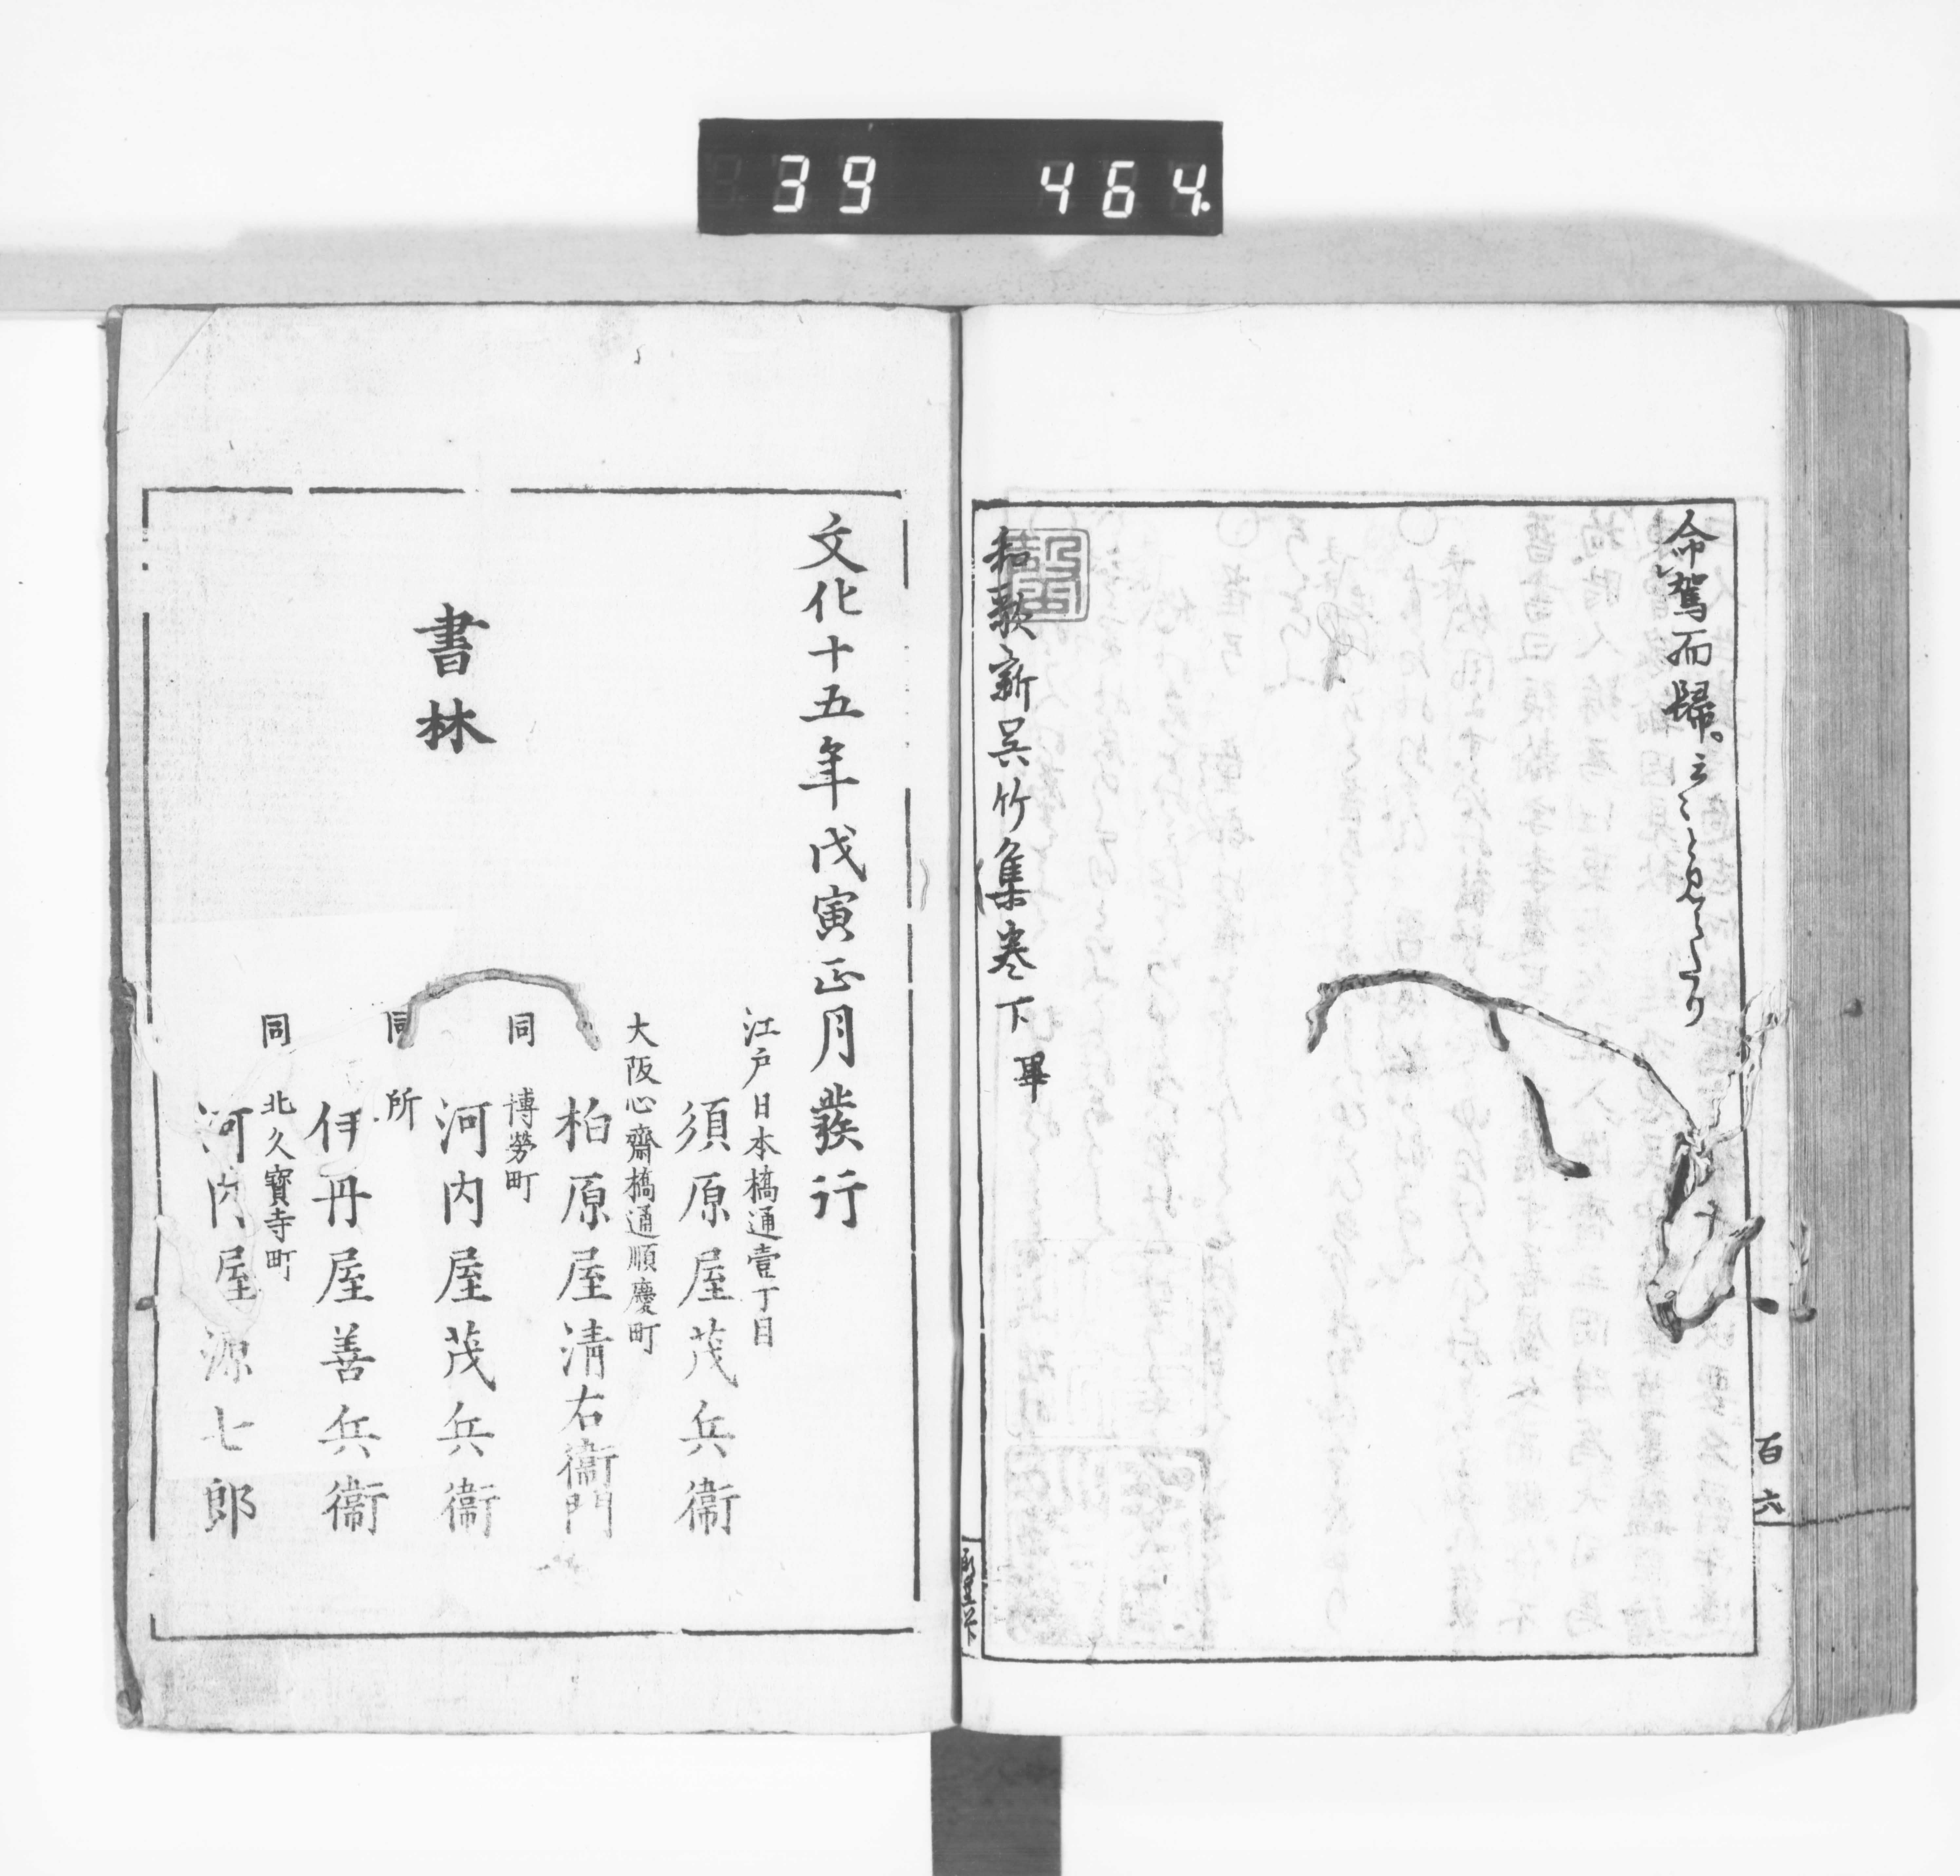 39 464.
命駕而歸。云々と見えたり
和歌新呉竹集巻下 畢
百六
文化十五年戊寅正月發行
江戸日本橋通壹丁目
須原屋茂兵衞
大阪心齋橋通順慶町
柏原屋清右衞門
同 博勞町
河内屋茂兵衞
同 所
伊丹屋善兵衞
同 北久寶寺町
河内屋源七郎
書林